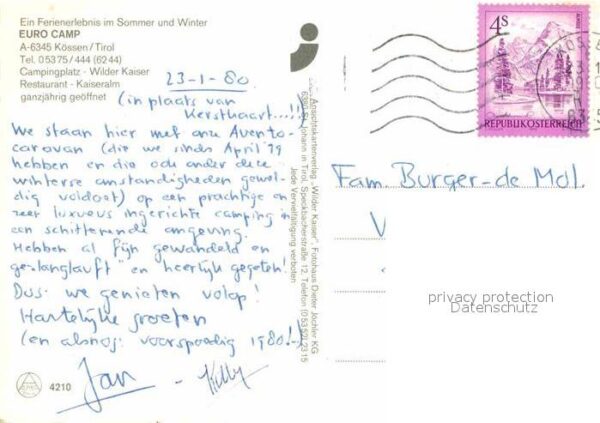 Ein Ferienerlebnis im Sommer und Winter
EURO CAMP
A-6345 Kössen / Tirol
Tel. 05375 / 444 (6244)
Campingplatz - Wilder Kaiser
Restaurant - Kaiseralm
ganzjährig geöffnet
23-1-80
(in plaats van
Kerstkaart...!!)
We staan hier met onze Avento-
caravan (die we sinds April '79
hebben en die ook onder deze
winterse omstandigheden gewel-
dig voldoet) op een prachtige en
zeer luxueus ingerichte camping in
een schitterende omgeving.
Hebben al fijn gewandeld en
ge-"langlauft" en heerlijk gegeten!
Dus: we genieten volop!
Hartelijke groeten
(en alsnog: voorspoedig 1980!!)
Jan - Kelly
4210
Ansichtskartenverlag „Wilder Kaiser", Fotohaus Dieter Jöchler KG
6380 St. Johann in Tirol, Speckbacherstraße 12, Telefon (05352) 2315
Jede Vervielfältigung verboten
4S
REPUBLIK ÖSTERREICH
Fam. Burger-de Mol.
V
privacy protection
Datenschutz